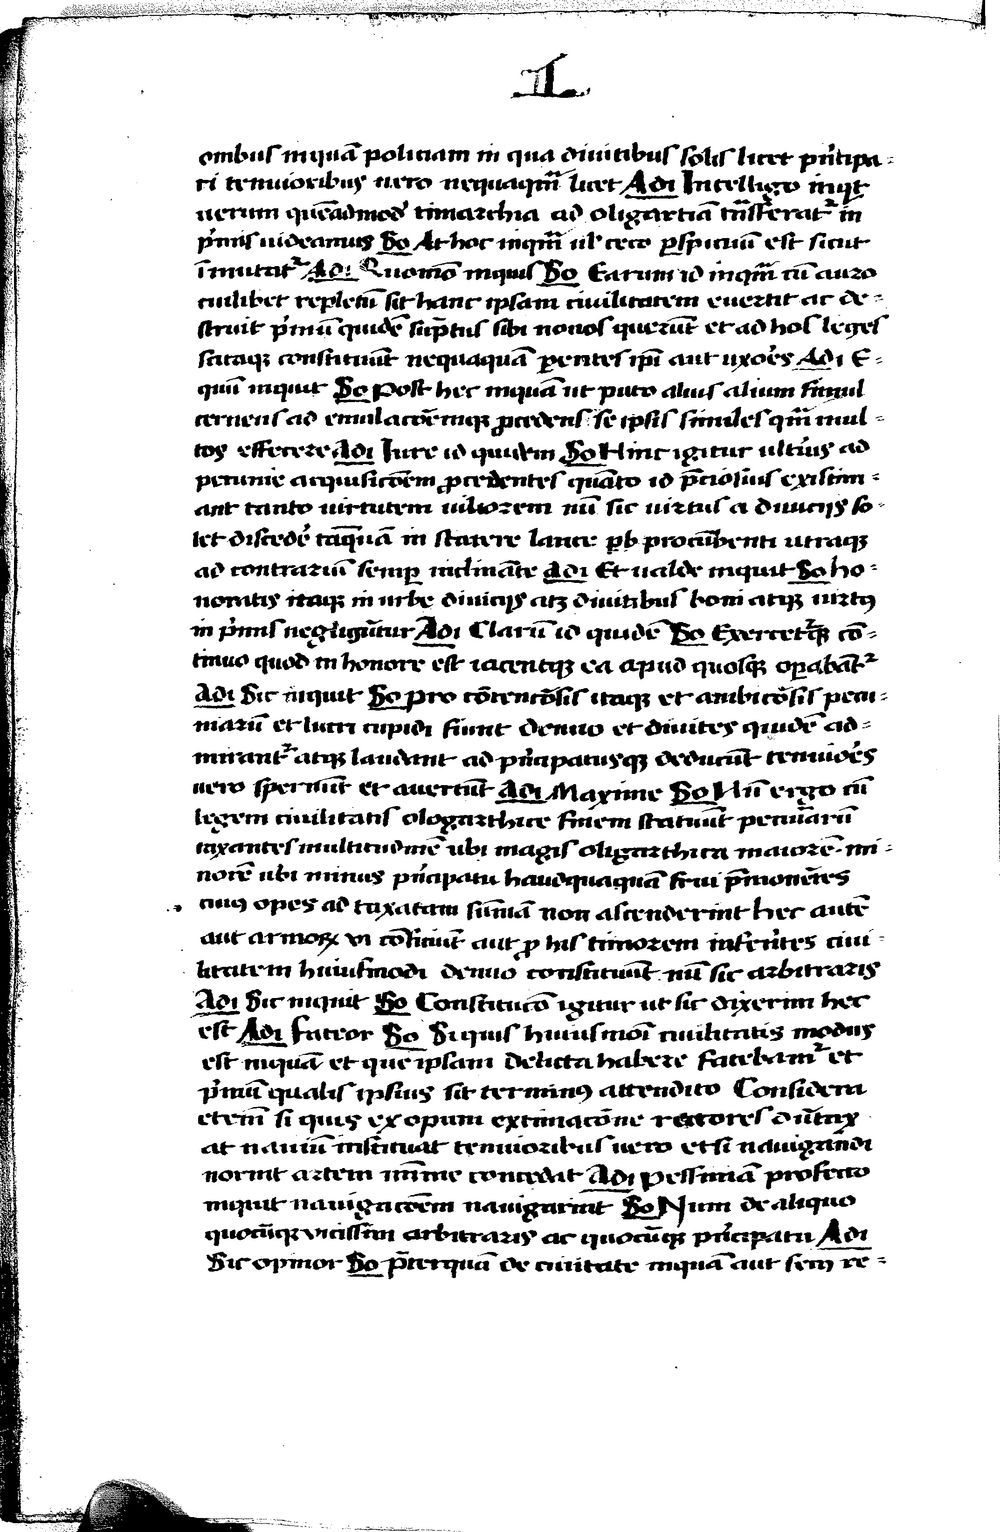 II
ombus inquā policiam in qua diuitibus solis licet p̄ncipa-
ri tenuioribus uero nequaqm̄ licet Adi Intelligo inqt
uerum quēadmod̄ timarchia ad oligartiā tn̄sferat᷑ in
p̄mis uideamus So At hoc inqm̄ ul ceco ꝑspicuū est sicut
ī mutat᷑ Adi Quomō inquis So Earum id inqm̄ cū auro
cuilibet repletū sit hanc ipsam ciuilitatem euertit ac de-
struit p̄mū quidē sūptus sibi nouos querūt et ad hos leges
scitaqꝫ constituūt nequaquā ꝑentes ipī aut uxor̄es Adi E-
quū inquit So Post hec inquā ut puto alius alium simul
cernens ad emulacōemqꝫ ꝓcedens se ipsis similes qm̄ mul-
tos effecere Adi Iure id quidem So Hinc igitur ultīus ad
pecunie acquisicōem ꝓcedentes quāto id p̄ciosius existim-
ant tanto uirtutem uiliorem nū sic uirtus a diuicijs so-
let discedē tāquā in statere lance ꝑb procūbenti utraqꝫ
ad contrariū semꝑ inclināte Adi Et ualde inquit So ho-
noratis itaqꝫ in urbe diuicijs atqꝫ diuitibus boni atqꝫ uirtꝰ
in p̄mis negligūtur Adi Clarū id quidē So Exercet᷑qꝫ cō-
tinuo quod in honore est iacentqꝫ ea apud quosqꝫ oꝑabāt᷑
Adi Sic inquit So Pro cōtencōsis itaqꝫ et ambicōsis pecu-
niarū et lucri cupidi fiunt denuo et diuites quidē ad-
mirant᷑ atqꝫ laudant ad p̄ncipatusqꝫ deducūt tenuiōes
uero spernūt et auertūt Adi Maxime So Nū ergo cū
legem ciuilitatis ologarthice finem statuūt pecuniarū
taxantes multitudinē ubi magis oligarthica maiorē mi-
norē ubi minus p̄ncipatu haudquaquā frui p̄monētes
cuiꝰ opes ad taxatam sūmā non ascenderint hec autē
aut armoꝝ vi cōficiūt aut ꝓ his timorem inferētes ciui-
litatem huiusmodi denuo constituūt nū sic arbitraris
Adi Sic inquit So Constitucō igitur ut sic dixerim hec
est Adi fateor So Siquis huiusmōi ciuilitatis modus
est inquā et que ipsam delicta habere fatebam᷑ et
p̄mū qualis ipsius sit terminꝰ attendito Considera
etenī si quis ex opum extimacōne rectores dūtax
at nauiū instituat tenuioribus uero etsi nauigandi
norint artem mīme concedat Adi Pessimā profecto
inquit nauigacōem nauigarint So Num de aliquo
quocūqꝫ vicissim arbitraris ac quocūqꝫ p̄ncipatu Adi
Sic opinor So p̄terquā de ciuitate inquā aut sem re-